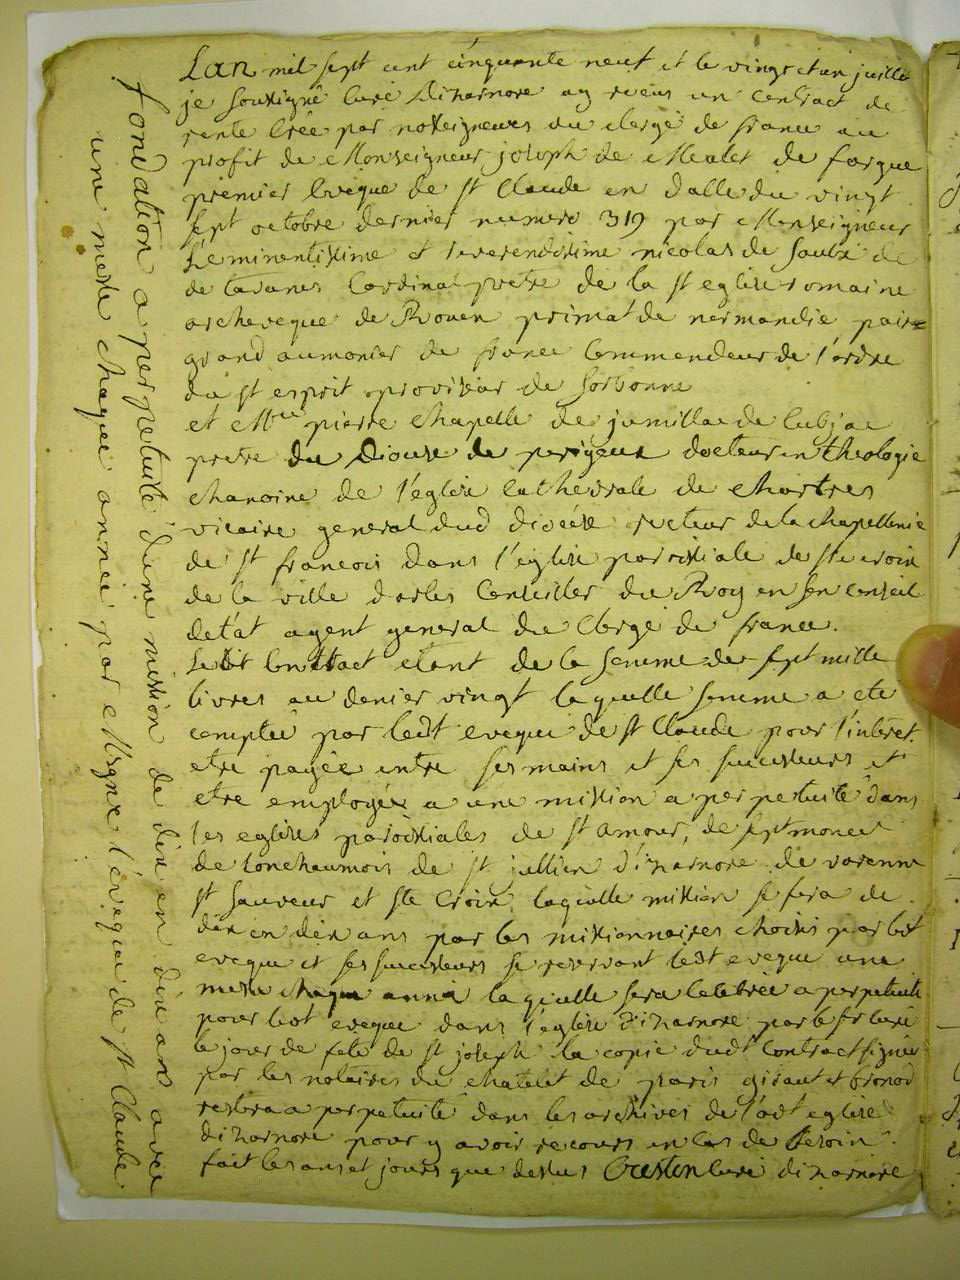 fondation a perpetuité d'une mission de dix en dix ans avec
une messe chaque année par Msgnr l'évêque de st Claude
Lan mil sept cent cinquante neuf et le vingt et un juillet
je soussigné curé Dizarnore ay recus un contract de
rente créé par nosseigneurs du clergé de france au
profit de Monseigneur joseph de Mealet de fargue
premier evêque de st Claude en datte du vingt
sept octobre dernier numero 319 par Monseigneur
L'eminentissime et reverendissime nicolas de saulx de
de tavanes Cardinal pretre de la st eglise romaine
archeveque de Rouen primat de normandie pair
grand aumonier de france Commendeur de l'ordre
du st esprit proviseur de sorbonne
et Mre pierre chapelle de jumillac de Cubjac
pretre du Diocese de perigeux docteur en theologie
chanoine de l'eglise cathedrale de chartres
vicaire general dud diocése recteur de la chapellenie
de st francois dans l'eglise paroissiale de ste croix
de la ville darles Conseiller du Roy en son conseil
detat agent general du Clergé de france.
Ledit Contract etant de la somme de sept mille
livres au denier vingt laquelle somme a ete
comptée par ledt eveque de st Claude pour l'interet
etre payée entre ses mains et ses successeurs et
etre employée a une mission a perpetuité dans
les eglises paroissiales de st amour, de septmoncel
de lonchaumois de st jullien d'izarnore de varenne
st sauveur et ste Croix laquelle mission se fera de
dix en dix ans par les missionnaires choisis par ledt
eveque et ses successeurs se reservant ledt eveque une
messe chaque année laquelle sera celebrée a perpetuité
pour ledt eveque dans l'eglise d'izarnore par le sr curé
le jour de fete de st joseph la copie dudt Contract signée
par les notaires du chatelet de paris giraut et bronod
restera a perpetuité dans les archives de ladt eglise
dizarnore pour y avoir recours en cas de besoin.
fait les ans et jours que dessus curé dizarnore